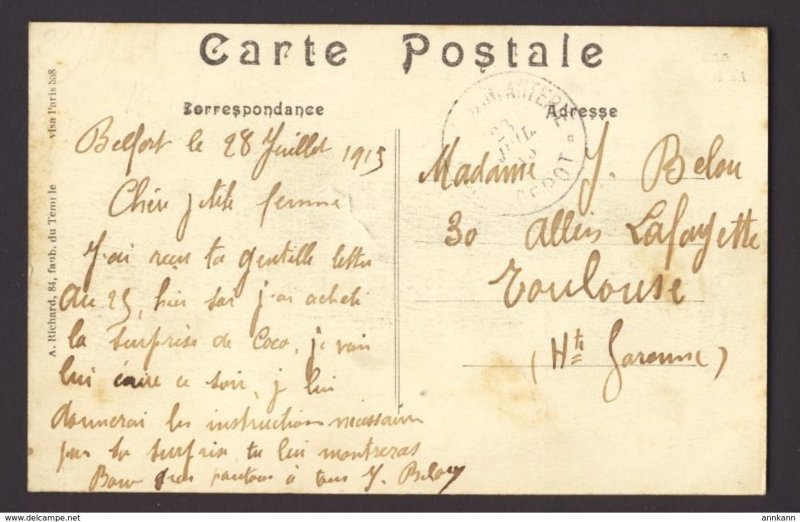 Carte Postale
Correspondance
Adresse
Belfort le 28 Juillet 1915
Chère petite femme
J'ai reçu ta gentille lettre
du 25, hier soir j'ai acheté
la surprise de Coco, je vais
lui écrire ce soir, je lui
donnerai les instructions nécessaires
pour la surprise, tu lui montreras
à tous J. Belou
Madame J. Belou
30 allées Lafayette
Toulouse
(Hte Garonne)
INFANTERIE
JUIL
DEPOT
A. Richard, 84, faub. du Temple
visa Paris 538
annkann